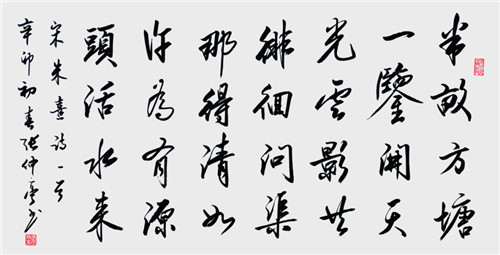 半畝方塘
一鑒開天
光雲影共
徘徊問渠
那得清如
許為有源
頭活水來
宋朱熹詩一首
辛卯初春張仲亭书